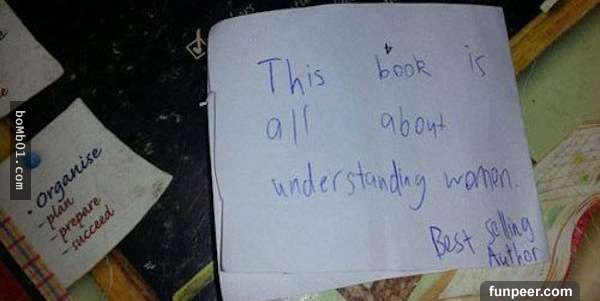 This book is
all about
understanding women.
Best selling
Author
• Organise
- plan
- prepare
- succeed
boMb01.com
funpeer.com